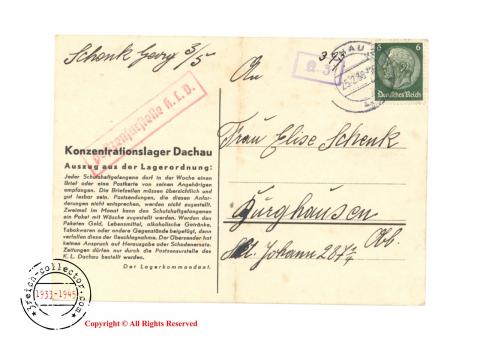 Schenk Georg 3/5
Postzensurstelle K.L.D.
a 3
6 6
Deutsches Reich
An
Frau Elise Schenk
Burghausen
St. Johann 287
Ob.
Konzentrationslager Dachau
Auszug aus der Lagerordnung:
Jeder Schutzhaftgefangene darf in der Woche einen
Brief oder eine Postkarte von seinen Angehörigen
empfangen. Die Briefzeilen müssen übersichtlich und
gut lesbar sein. Postsendungen, die diesen Anfor-
derungen nicht entsprechen, werden nicht zugestellt.
Zweimal im Monat kann des Schutzhaftgefangenen
ein Paket mit Wäsche zugestellt werden. Werden das
Paketen Geld, Lebensmittel, alkoholische Getränke,
Tabakwaren oder andere Gegenstände beigefügt, dann
verfallen diese der Beschlagnahme. Der Übersender hat
keinen Anspruch auf Herausgabe oder Schadenersatz.
Zeitungen dürfen nur durch die Postzensurstelle des
K. L. Dachau bestellt werden.
Der Lagerkommandant.
3reich-collector.com
1933-1945
Copyright © All Rights Reserved